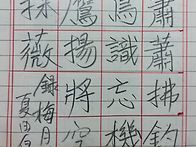 蕭蕭拂釣
鳥識忘機
鷹揚將空
採薇
錄梅月
夏日